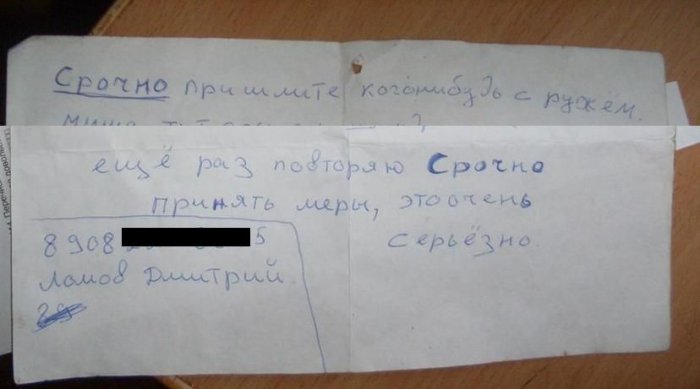 Срочно пришлите когонибудь с ружём.
ещё раз повторяю Срочно
принять меры, это очень
серьёзно.
8908 5
Ламов Дмитрий